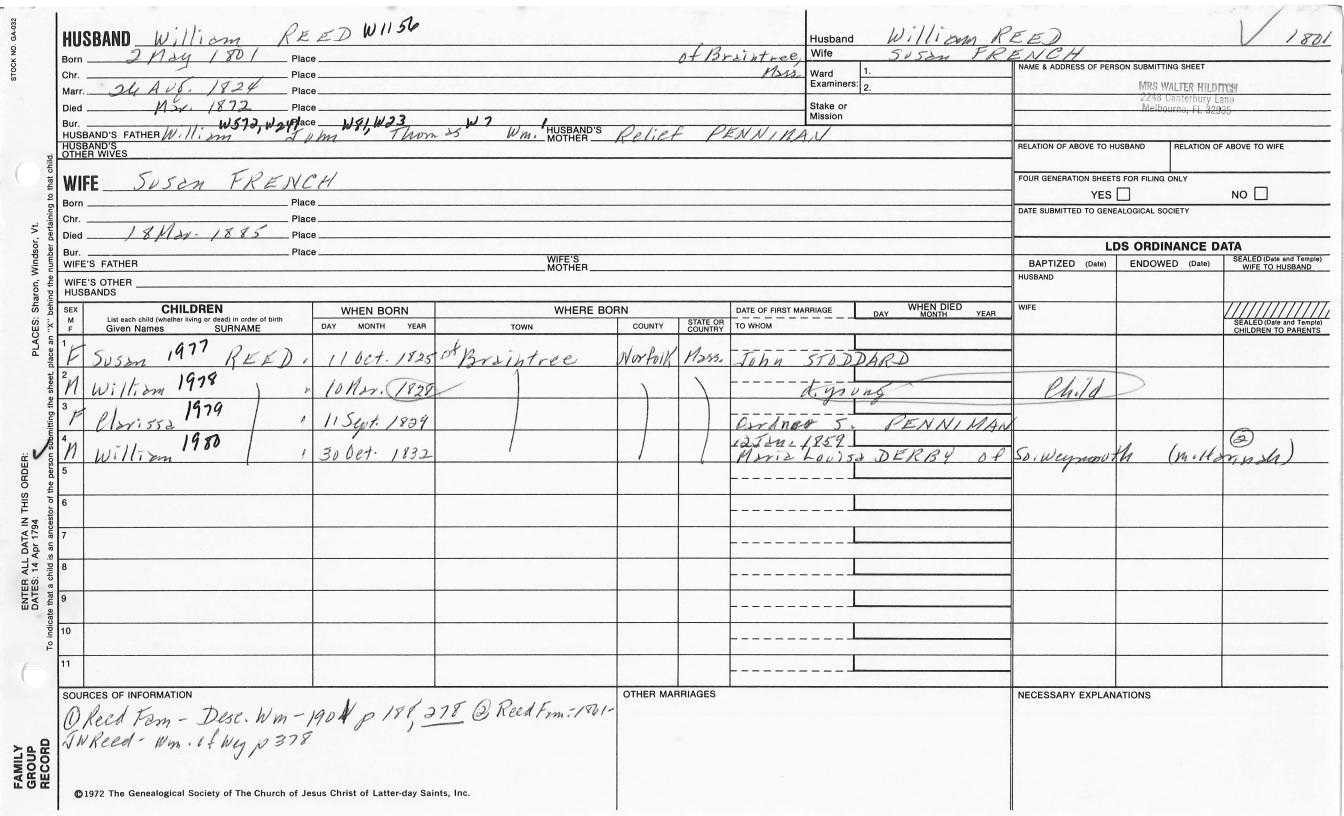 STOCK NO. GA-032
HUSBAND William REED W1156
Born 2 May 1801 Place of Braintree,
Chr. Place Mass.
Marr. Place
Died Mar. 1872 Place
Bur. Place
W572, W241 W81, W23 W7
HUSBAND'S FATHER William John Thomas Wm. HUSBAND'S MOTHER Relief PENNIMAN
HUSBAND'S OTHER WIVES
Husband William REED 1801
Wife Susan FRENCH
Ward Examiners: 1.
2.
Stake or Mission
NAME & ADDRESS OF PERSON SUBMITTING SHEET
MRS WALTER HILDITCH
2248 Canterbury Lane
Melbourne, FL 32935
RELATION OF ABOVE TO HUSBAND RELATION OF ABOVE TO WIFE
FOUR GENERATION SHEETS FOR FILING ONLY
YES NO
DATE SUBMITTED TO GENEALOGICAL SOCIETY
WIFE Susan FRENCH
Born Place
Chr. Place
Died 18 Mar. 1885 Place
Bur. Place
WIFE'S FATHER WIFE'S MOTHER
WIFE'S OTHER HUSBANDS
LDS ORDINANCE DATA
BAPTIZED (Date) ENDOWED (Date) SEALED (Date and Temple) WIFE TO HUSBAND
HUSBAND
WIFE
SEALED (Date and Temple) CHILDREN TO PARENTS
SEX M F
CHILDREN
List each child (whether living or dead) in order of birth
Given Names SURNAME
WHEN BORN
DAY MONTH YEAR
WHERE BORN
TOWN COUNTY STATE OR COUNTRY
DATE OF FIRST MARRIAGE
TO WHOM
WHEN DIED
DAY MONTH YEAR
1 F Susan 1977 REED 11 Oct. 1825 of Braintree Norfolk Mass. John STODDARD
2 M William 1978 " 10 Mar. 1828 d. young Child
3 F Clarissa 1979 " 11 Sept. 1829 S. PENNIMAN
4 M William 1980 " 30 Oct. 1832 12 Jan. 1859 Maria Louisa DERBY of So. Weymouth (m. Hannah) 2
5
6
7
8
9
10
11
SOURCES OF INFORMATION
① Reed Fam - Desc. Wm - 1901 p 188, 278 ② Reed Fam: 1861-
JW Reed - Wm. of Wey p 378
OTHER MARRIAGES
NECESSARY EXPLANATIONS
©1972 The Genealogical Society of The Church of Jesus Christ of Latter-day Saints, Inc.
FAMILY GROUP RECORD
ENTER ALL DATA IN THIS ORDER:
DATES: 14 Apr 1794
PLACES: Sharon, Windsor, Vt.
To indicate that a child is an ancestor of the person submitting the sheet, place an "X" behind the number pertaining to that child.